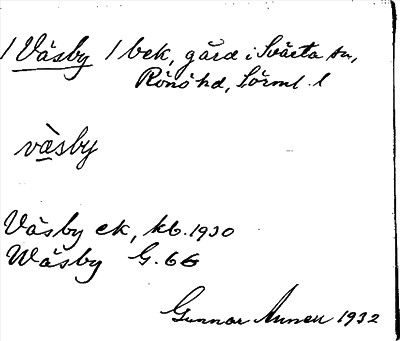 / Väsby / bek, gård i Svärta sn,
Rönö hd, Sörml. l
väsby
Väsby ek, kb. 1930
Wäsby G. 66
Gunnar 1932